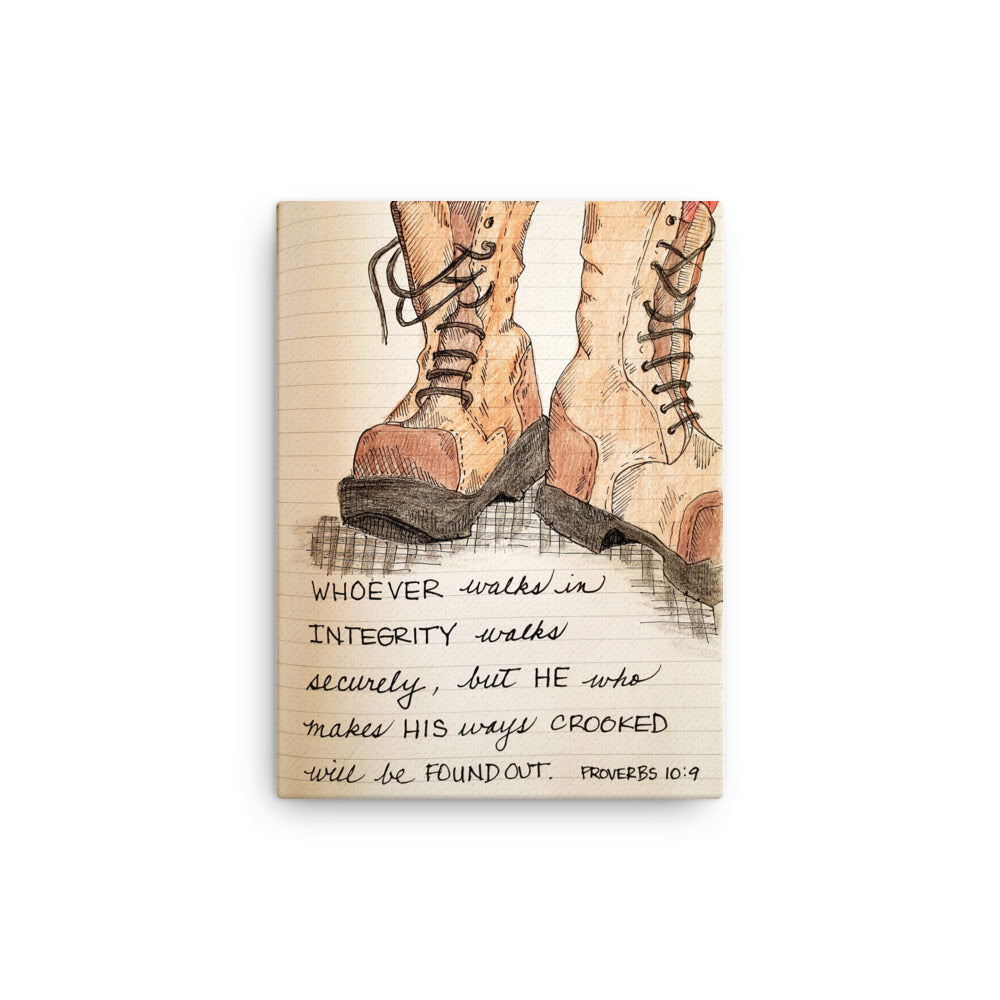 WHOEVER walks in
INTEGRITY walks
securely, but HE who
makes HIS ways CROOKED
will be FOUND OUT. PROVERBS 10:9